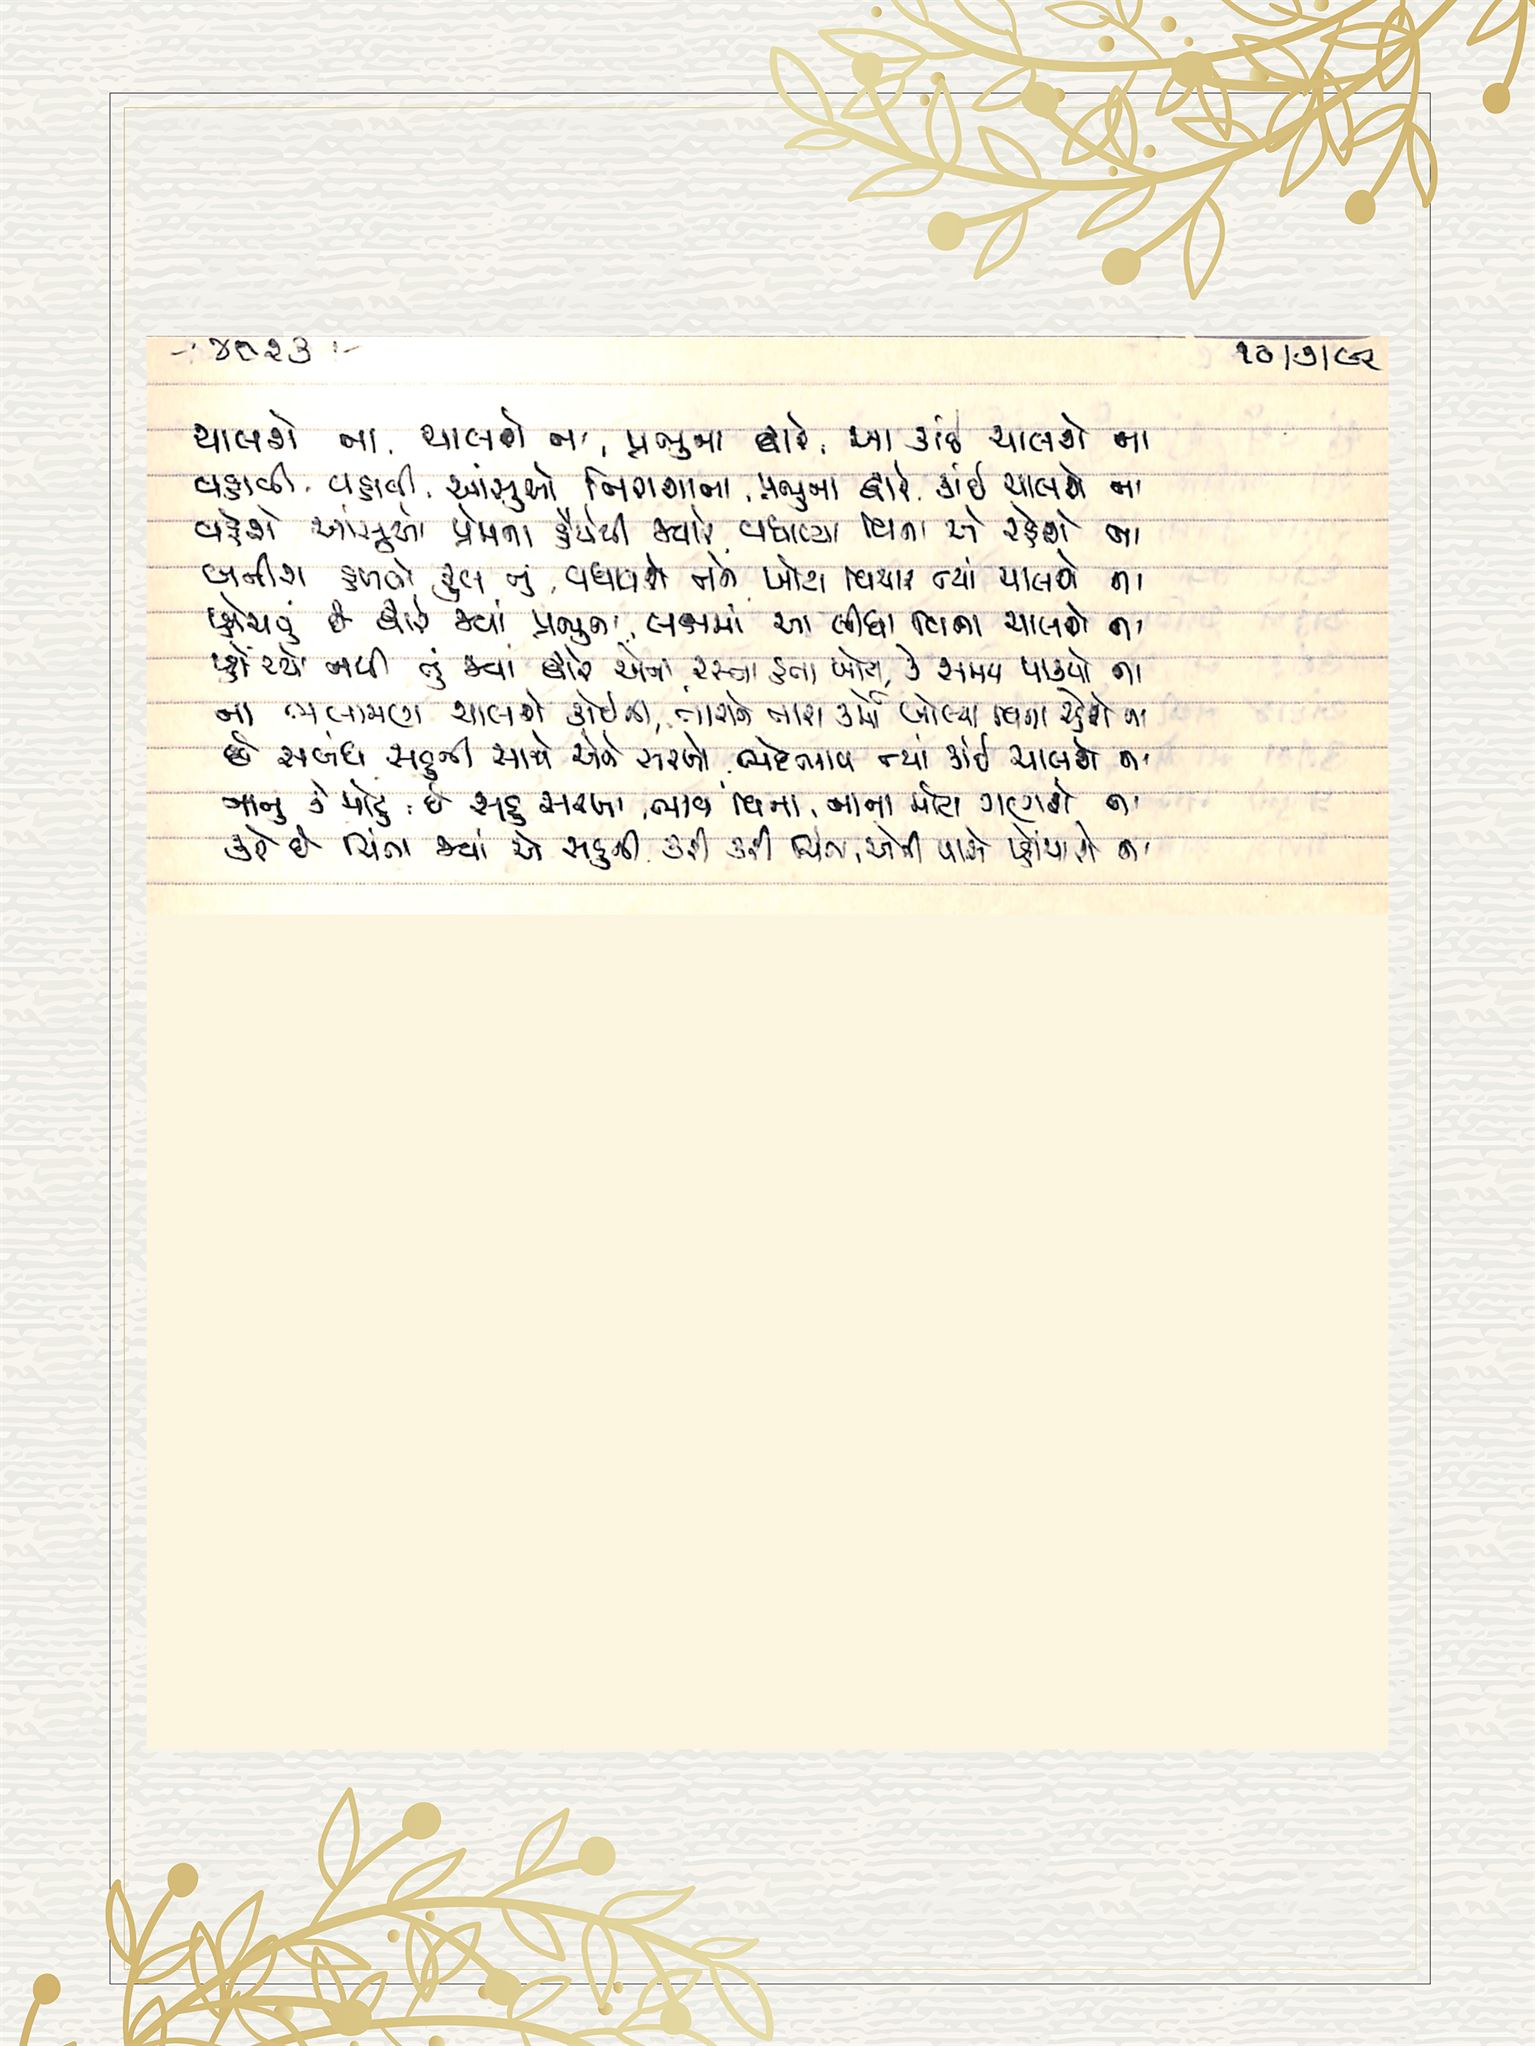 -: ૪૦૨૩ :-
૧૦/૭/૯૨
ચાલશે ના, ચાલશે ના, પ્રભુના દ્વારે, આ કાંઈ ચાલશે ના
વહાવી, વહાવી, આંસુઓ નિરાશાના, પ્રભુના દ્વારે કાંઈ ચાલશે ના
વહેશે આંસુઓ પ્રેમના હૈયેથી જ્યારે, વધાવ્યા વિના એ રહેશે ના
બનીશ ફૂલ નું, વધાવશે તને, ખોટા વિચાર ત્યાં ચાલશે ના
પ્હોંચવું છે દ્વારે જ્યાં પ્રભુના, લક્ષમાં આ લીધા વિના ચાલશે ના
પ્હોંચ્યો નથી તું જ્યાં દ્વારે એના, રસ્તા હતા ખોટા, કે સમય પાક્યો ના
ના ભલામણ ચાલશે કોઈની, તારાને તારા કર્મો બોલ્યા વિના રહેશે ના
છે સબંધ સહુની સાથે એને સરખો, ભેદભાવ ત્યાં કાંઈ ચાલશે ના
નાનું કે મોટું, છે સહુ સરખા, ભાવ વિના, નાના મોટા ગણાશે ના
કરે છે ચિંતા જ્યાં એ સહુની, કરી કરી ચિંતા, એની પાસે પ્હોંચાશે ના